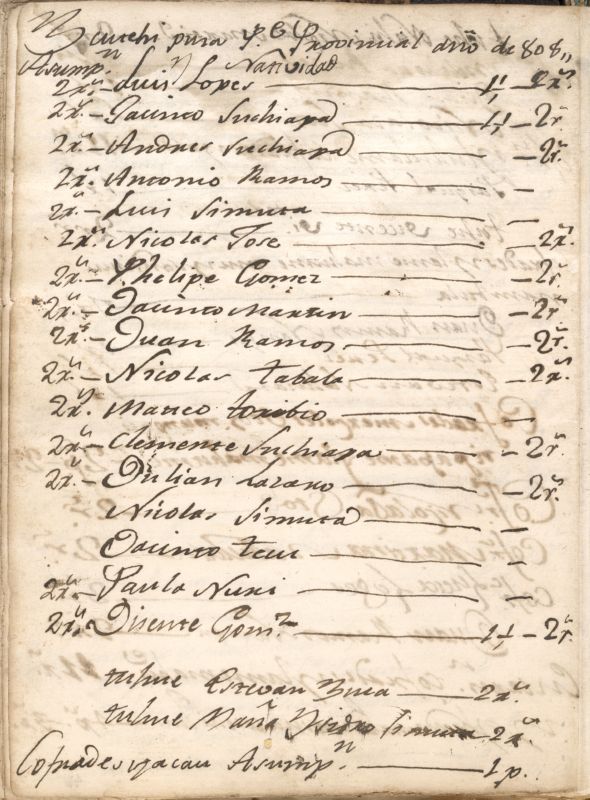 pura P.e Provincial año de 808,,
Asump.n Natividad
2r.s - Luis Lopes 1/, - 2r.s
2r.s - Jacinto Suchiapa 1/, - 2r.s
2r.s - Andres Suchiapa - 2r.s
2r.s Antonio Ramos -
2r.s - Luis Simuta -
2r.s Nicolas Jose - 2r.s
2r.s - Phelipe Gomez - 2r.s
2r.s - Jacinto Martin - 2r.s
2r.s - Juan Ramos - 2r.s
2r.s - Nicolas tabala - 2r.s
2r.s Mateo toribio -
2r.s - Clemente Suchiapa - 2r.s
2r.s - Julian Lazaro - 2r.s
Nicolas Simuta -
Jacinto -
2r.s - Paulo Nuri -
2r.s Visente Gom.z 1/, - 2r.s
Estevan 2r.s
Maria Ysidro Simuta - 2r.s
Cofrades Asump.n 1 p.